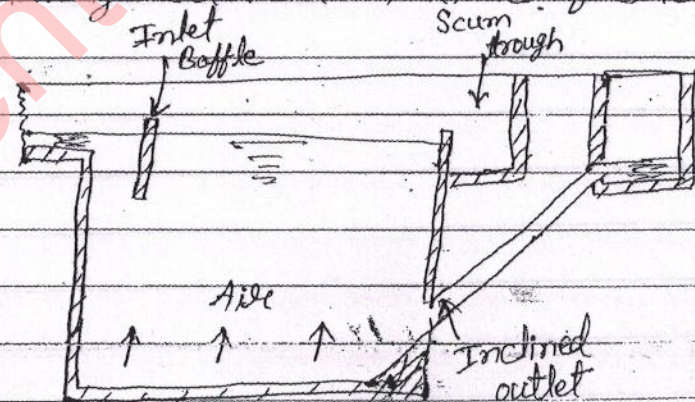 Inlet
Baffle
Scum
trough
Air
Inclined
outlet